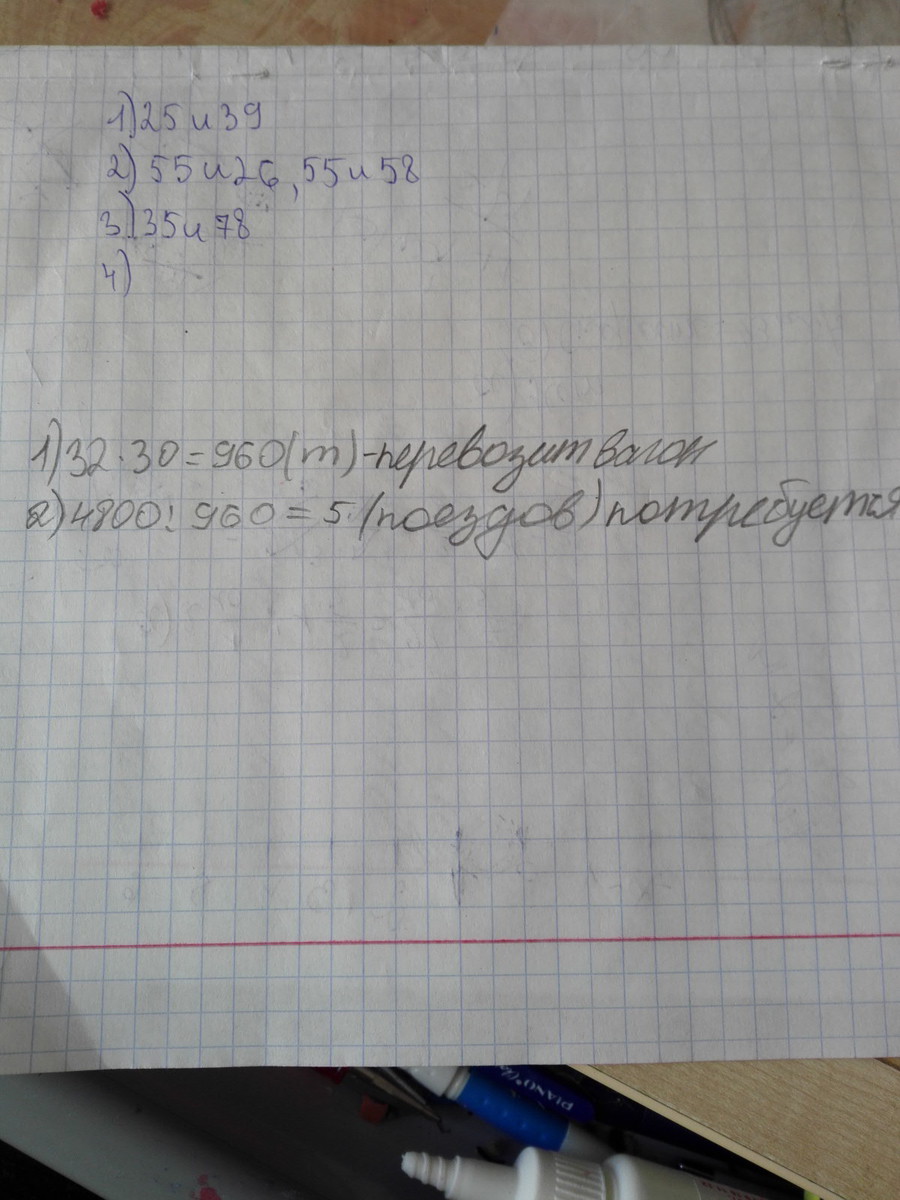 1) 25 и 39
2) 55 и 26, 55 и 58
3) 35 и 78
4)
1) 32·30=960(т)-перевозит вагон
2) 4800:960=5 (поездов) потребуется
PIANO